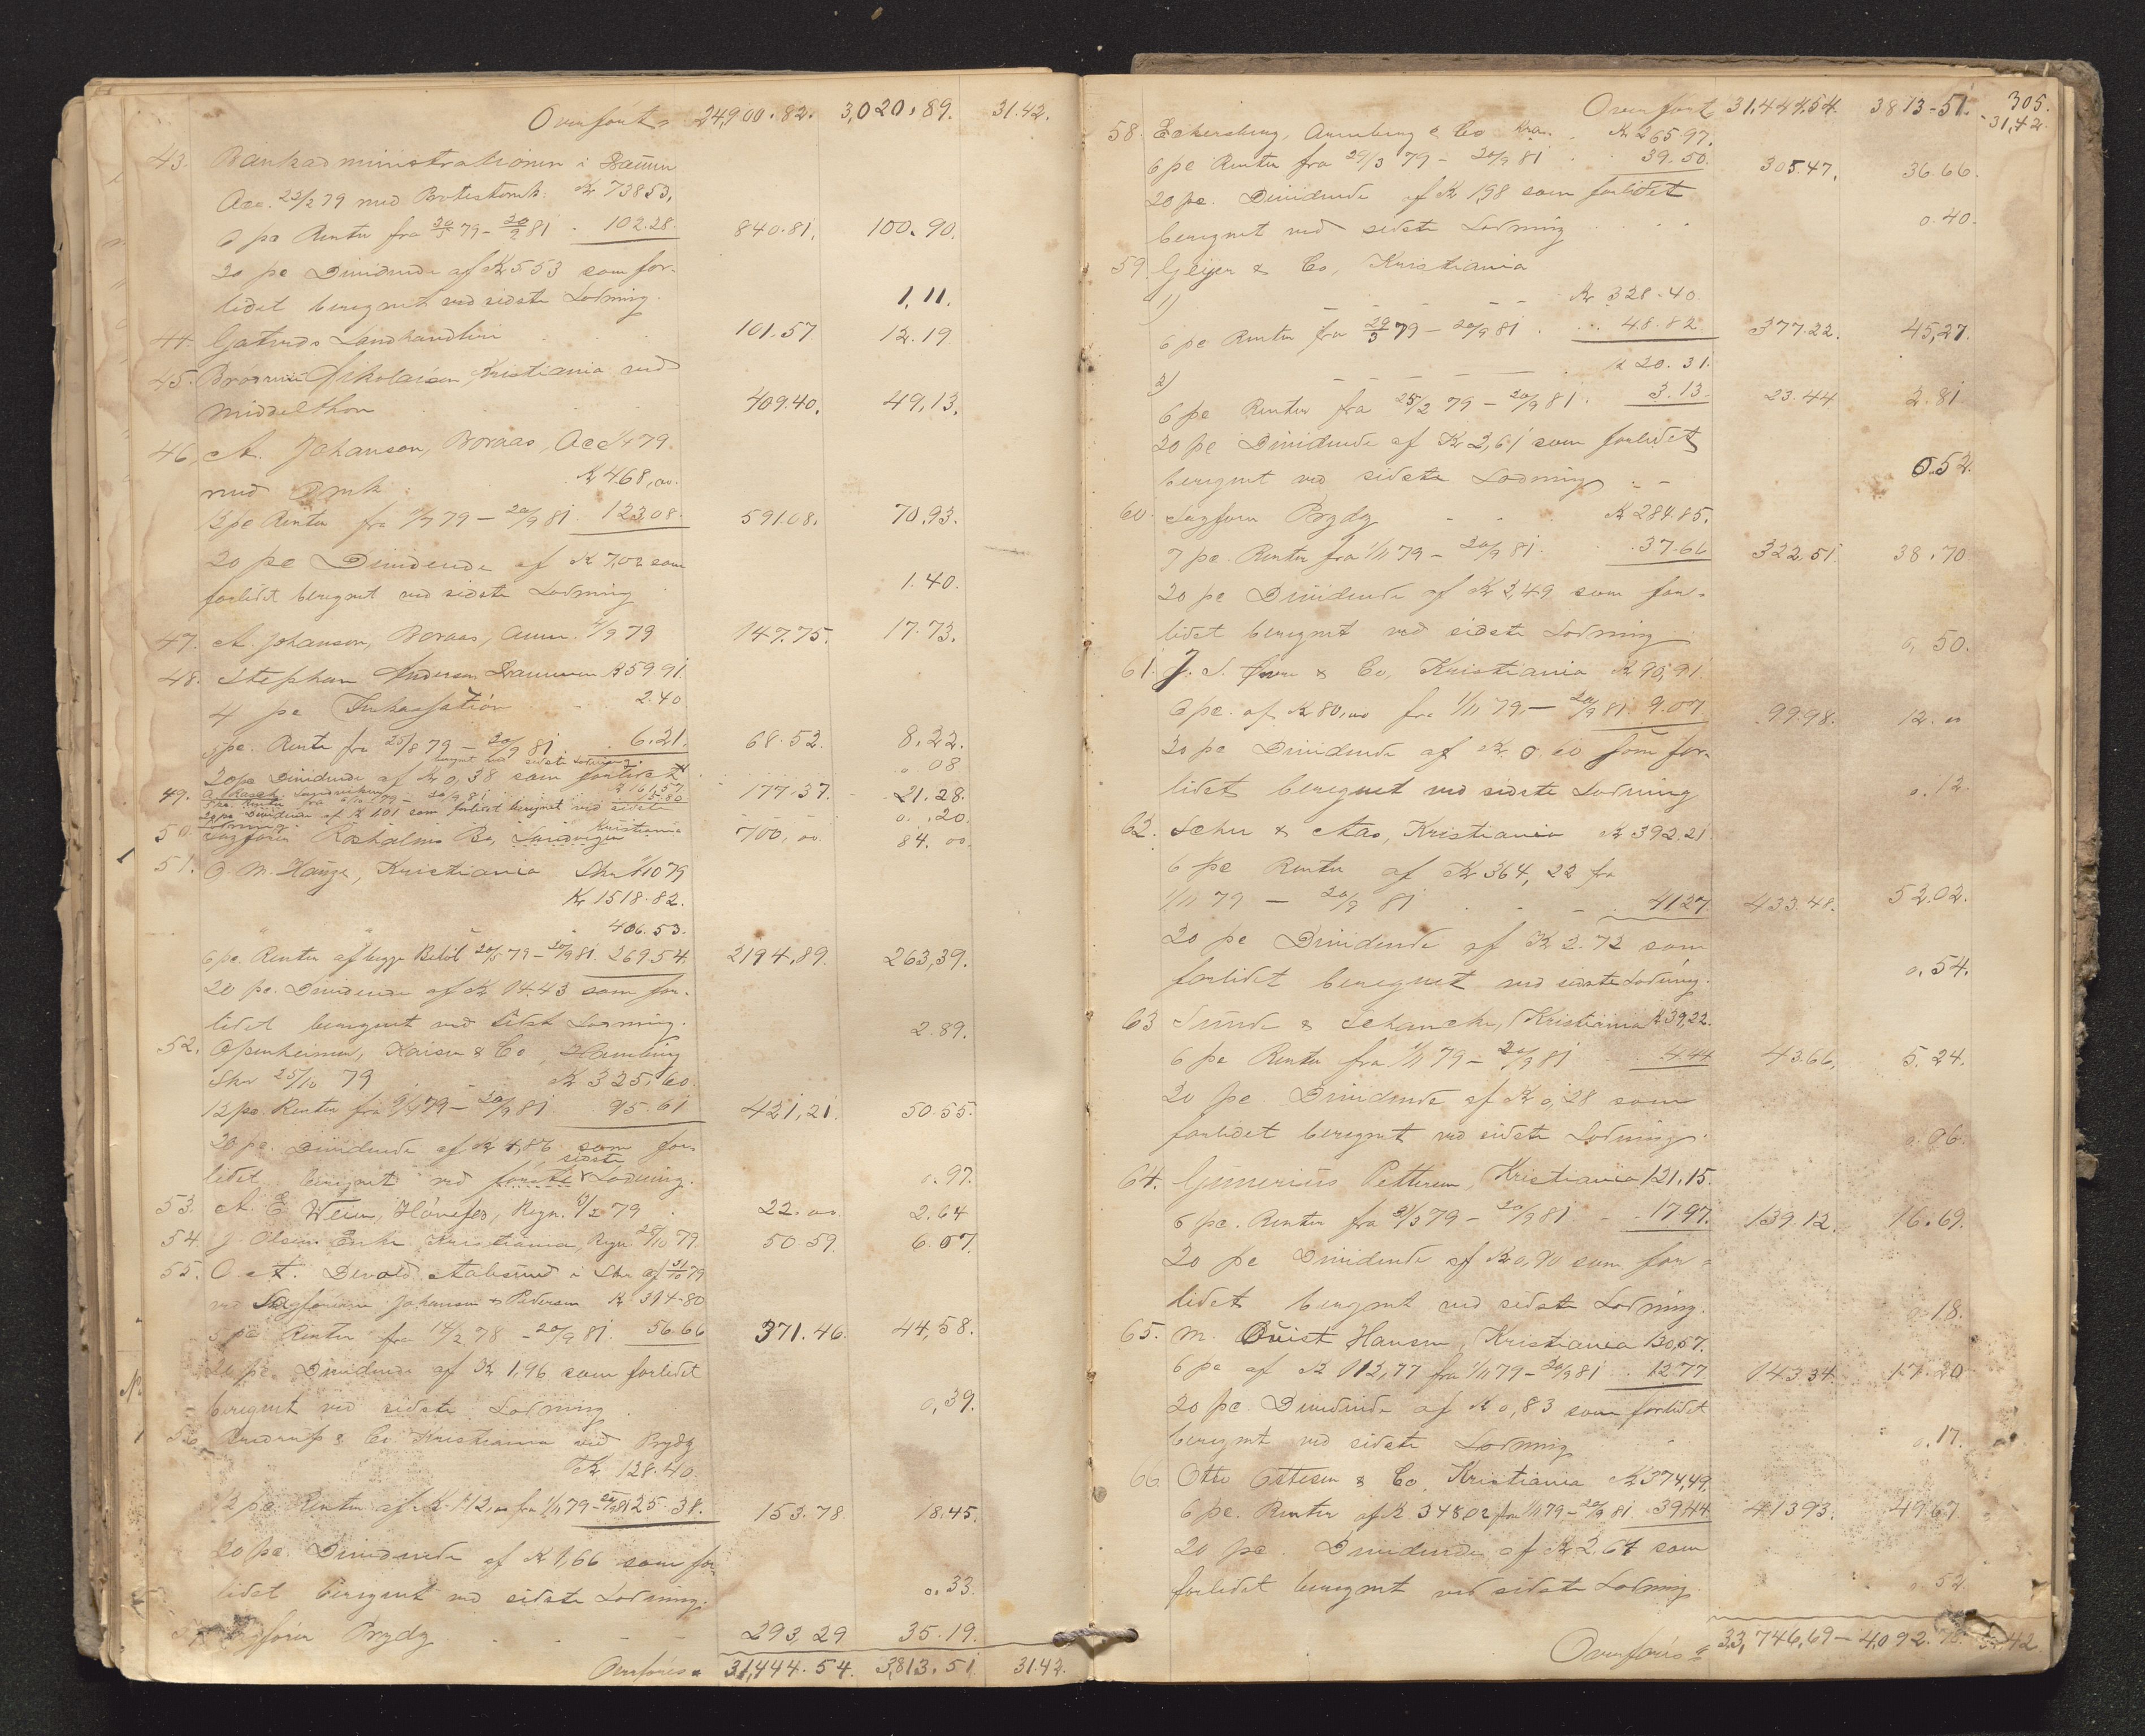 Overført 24,900.82. 3,020.89. 31.42.
43. Bankadministrationen i
Acc. 23/2 79 med Protestomk. Kr 738.53.
6 pc Renter fra 20/5 79 – 20/9 81 . 102.28. 840.81. 100.90.
20 pc Dividende af Kr 5.53 som for-
lidet beregnet ved sidste Lodning. 1.11.
44. Landhandleri 101.57 12.19
45. Brødrene Nikolaisen Kristiania ved
Middelthon 409.40. 49.13.
46. A. Johanson, Boraas, Acc 1/4 79.
med Omk. Kr 468,00.
12 pc Renter fra 1/7 79 – 20/9 81 123.08. 591.08. 70.93.
20 pc Dividende af Kr 7,02 som
forlidet beregnet ved sidste Lodning 1.40.
47. A. Johanson, Boraas, 1/9 79 147.75. 17.73.
48. Stephan Anderson Kr 59.91.
4 pc Inkassation 2.40
5 pc. Rente fra 25/8 79 – 20/9 81 . 6.21. 68.52. 8.22.
beregnet ved sidste Lodning.
20 pc Dividende af Kr 0,38 som forlidet . 08
49. 161.57
5 pc. Renter fra – 20/9 81 15.80 177.37. 21.28.
20 pc Dividende af Kr 1.01 som forlidet beregnet ved sidste
Lodning. 0.20.
50. Sagfører Kristiania 700,00. 84.00.
51. O. M. Hauge, Kristiania Skr 1/10 79
Kr 1518.82.
406.53.
6 pc. Renter af begge Beløb 20/5 79 – 20/9 81. 269.54. 2194.89. 263,39.
20 pc. Dividende af Kr 14.43 som for-
lidet beregnet ved sidst Lodning. 2.89.
52. Openheimer, Kaiser & Co, Hamburg
Skr 25/10 79 Kr 325.60.
12 pc. Renter fra 9/4 79 – 20/9 81 95.61 421,21. 50.55.
20 pc. Dividende af Kr 4,86 som for-
sidste
lidet beregnet ved første Lodning. 0.97.
53. A. E. Hønefos, Regn. 79 22.00 2.64
54. J. Olsens Enke Kristiania, Regn 28/10 79. 50.59. 6.07.
55. O. A. Devold Aalesund i Skr af 31/10 79
ved Sagførerne Johansen & Pedersen Kr. 314.80
5 pc. Renter fra 14/2 78 – 20/9 81. 56.66 371.46. 44,58.
20 pc. Dividende af Kr 1,96 som forlidet
beregnet ved sidste Lodning. 0,39.
56. & Co Kristiania ved Prydz
Kr 128.40.
12 pc. Renter af Kr 112,00 fra 1/11 79 – 20/9 81 25.38. 153.78 18.45.
20 pc. Dividende af Kr 1,66 som for-
lidet beregnet ved sidste Lodning. 0.33.
57. Sagfører Prydz 293,29 35.19.
Overføres 31,444.54. 3,813.51 31.42.
305.
Overført 31,444.54. 3813.51. 31,42.
58. Eckersberg, & Co Kra. Kr 265.97.
6 pc Renter fra 29/3 79 – 20/9 81 . 39.50. 305.47. 36.66.
20 pc. Dividende af Kr 1,98 som forlidet
beregnet ved sidste Lodning 0.40.
59. Geijer & Co, Kristiania
1) Kr 328.40
6 pc Renter fra 29/3 79 – 20/9 81 . 48.82 377.22. 45,27.
2) Kr 20.31.
6 pc Renter fra 25/2 79 – 20/9 81. 3.13. 23.44 2.81
20 pc Dividende af Kr 2,61 som forlidet
beregnet ved sidste Lodning 0.52.
60. Sagfører Prydz Kr 284.85.
7 pc. Renter fra 1/11 79 – 20/9 81. 37.66 322.51. 38.70
20 pc Dividende af Kr 2,49 som for-
lidet beregnet ved sidste Lodning 0,50.
61. J. S. & Co, Kristiania Kr 90,91.
6 pc. af Kr 80,00 fra 1/11 79, – 20/9 81. 9.07 99.98. 12.00
20 pc Dividende af Kr. 0.60 som for-
lidet beregnet ved sidste Lodning 0.12.
62. & Aas, Kristiania Kr 392.21.
6 pc Renter af Kr 364,22 fra
1/11 79 – 20/9 81 41.27. 433.48. 52.02.
20 pc Dividende af Kr 2.72 som
forlidet beregnet ved sidste Lodning. 0.54.
63. Sunde & Schancke, Kristiania Kr 39,22.
6 pc Renter fra 1/11 79 – 20/9 81 . 4.44. 43.66. 5.24.
20 pc. Dividende af Kr 0,28 som
forlidet beregnet ved sidste Lodning. 0.06.
64. Gunerius Pettersen, Kristiania 121.15.
6 pc. Renter fra 79 – 20/9 81 17.97. 139.12. 16.69.
20 pc Dividende af Kr 0,90 som for-
lidet beregnet ved sidste Lodning. 0.18.
65. M. Quist Hansen, Kristiania 130,57.
6 pc af Kr 112,77 fra 1/11 79 – 20/9 81. 12.77 143.34. 17.20
20 pc. Dividende af Kr 0,83 som forlidet
beregnet ved sidste Lodning 0.17.
66. Otto Ottesen & Co. Kristiania Kr 374,49.
6 pc. Renter af Kr 348,02 fra 1/11 79 – 20/9 81. 39.44. 413.93. 49.67.
20 pc. Dividende af Kr 2.64 som
forlidet beregnet ved sidste Lodning. 0.52
Overføres 33,746,69 – 4,092.